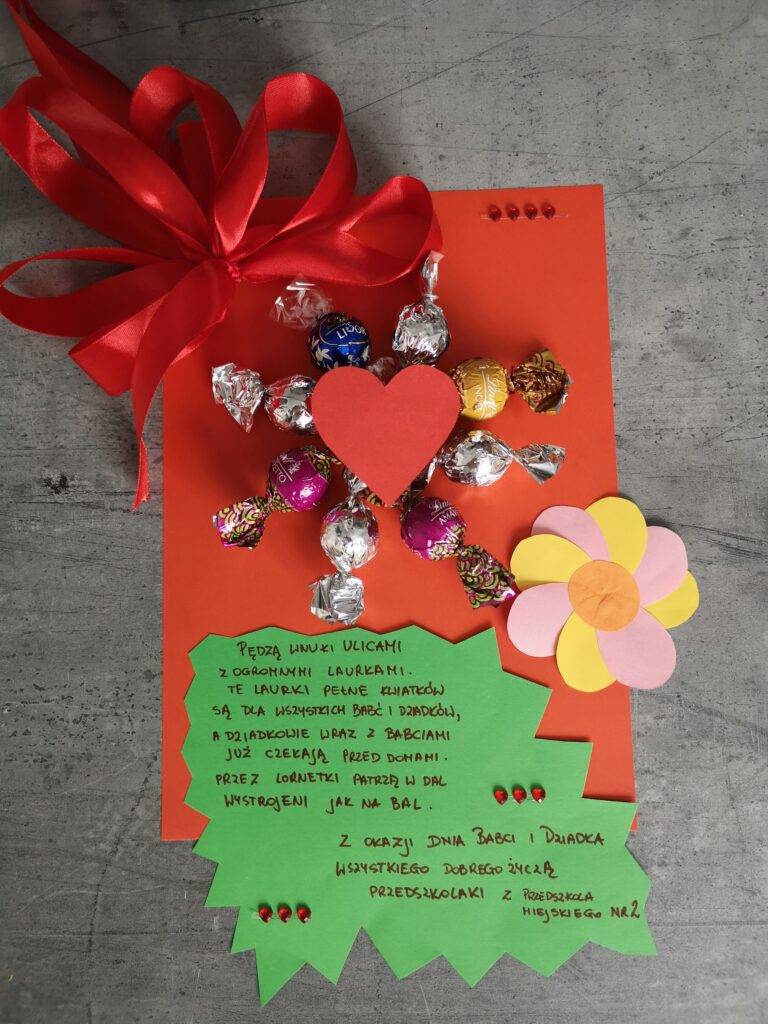 PĘDZĄ WNUKI ULICAMI
Z OGROMNYMI LAURKAMI.
TE LAURKI PEŁNE KWIATKÓW
SĄ DLA WSZYSTKICH BABĆ I DZIADKÓW,
A DZIADKOWIE WRAZ Z BABCIAMI
JUŻ CZEKAJĄ PRZED DOMAMI.
PRZEZ LORNETKI PATRZĄ W DAL
WYSTROJENI JAK NA BAL.
Z OKAZJI DNIA BABCI I DZIADKA
WSZYSTKIEGO DOBREGO ŻYCZĄ
PRZEDSZKOLAKI Z PRZEDSZKOLA
MIEJSKIEGO NR 2